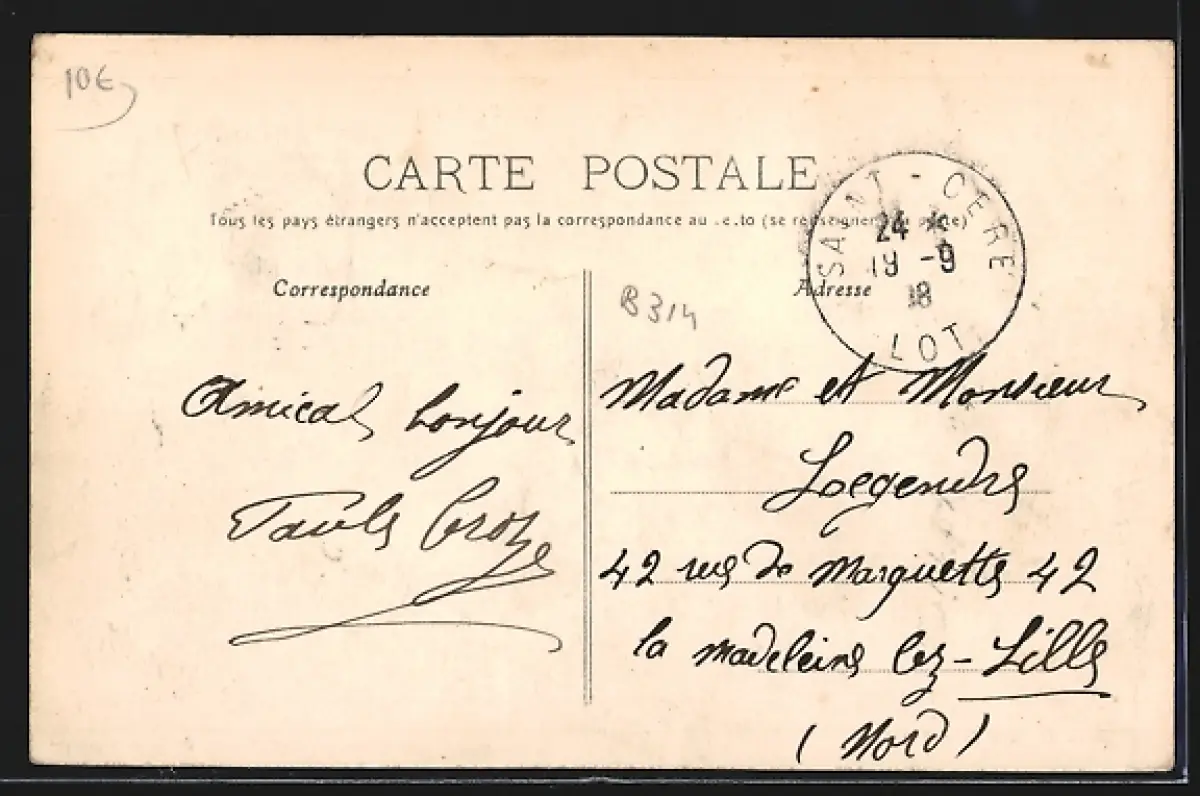 10€
CARTE POSTALE
Tous les pays étrangers n'acceptent pas la correspondance au (se renseigner à la poste)
SAINT-CERE
24 *
19 -9
18
LOT
Correspondance
Adresse
B314
Amical bonjour
Paule Croze
Madame et Monsieur
Loegendre
42 rue de Marquette 42
la madeleine lez-Lille
(Nord)